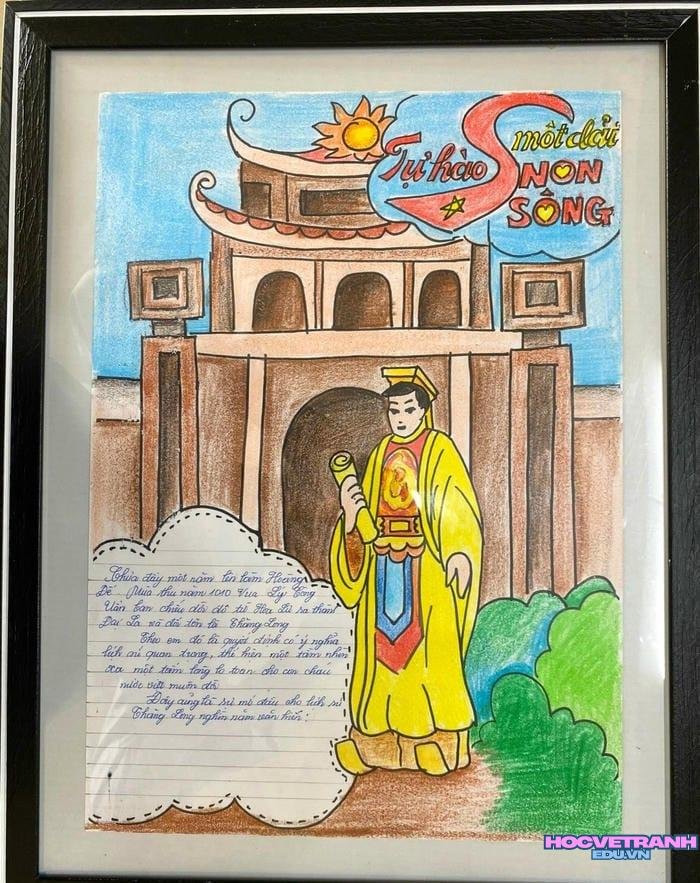 Tự hào
một dải
NON
SÔNG
Chưa đầy một năm lên làm Hoàng
Đế. Mùa thu năm 1010 Vua Lý Công
Uẩn ban chiếu dời đô từ Hoa Lư ra thành
Đại La và đổi tên là Thăng Long
Theo em đó là quyết định có ý nghĩa
lịch sử quan trọng, thể hiện một tầm nhìn
xa một tấm lòng lo toan cho con cháu
nước việt muôn đời
Đây cũng là sự mở đầu cho lịch sử
Thăng Long nghìn năm văn hiến!
HOCVETRANH
EDU.VN